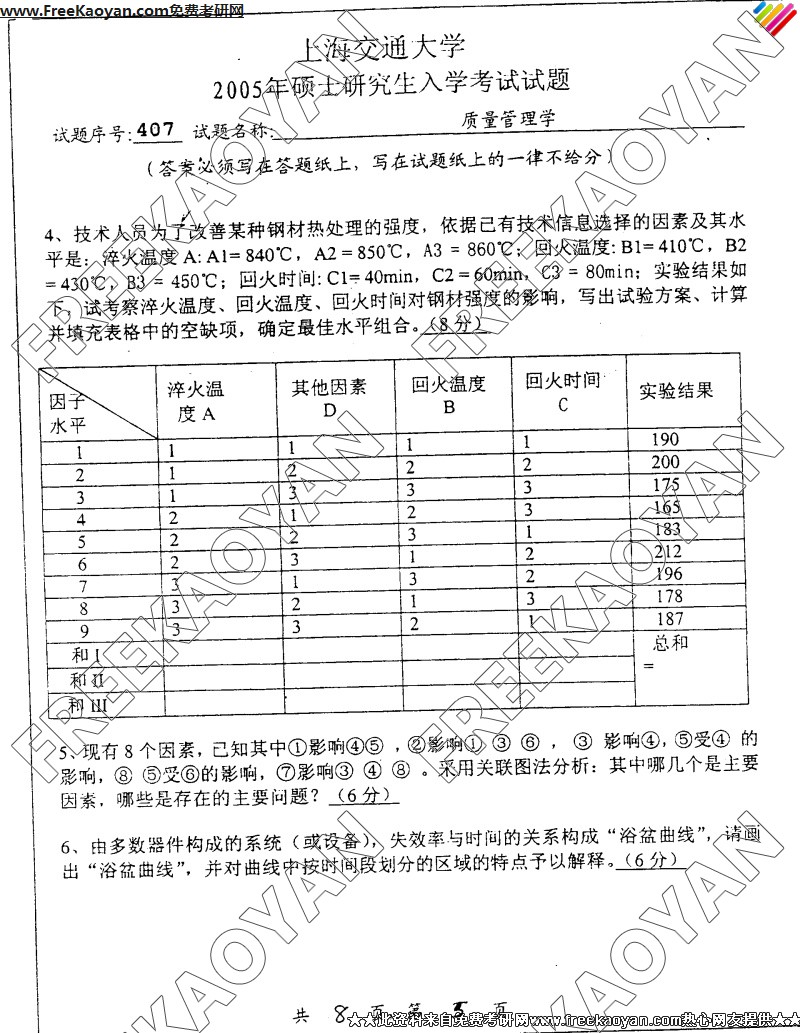 www.FreeKaoyan.com免费考研网
上海交通大学
2005年硕士研究生入学考试试题
试题序号:407 试题名称: 质量管理学
(答案必须写在答题纸上，写在试题纸上的一律不给分)
4、技术人员为了改善某种钢材热处理的强度，依据已有技术信息选择的因素及其水
平是：淬火温度 A: A1= 840℃，A2 = 850℃，A3 = 860℃；回火温度: B1= 410℃，B2
= 430℃，B3 = 450℃；回火时间: C1= 40min，C2 = 60min，C3 = 80min；实验结果如
下，试考察淬火温度、回火温度、回火时间对钢材强度的影响，写出试验方案、计算
并填充表格中的空缺项，确定最佳水平组合。(8 分)
因子 水平 淬火温度 A 其他因素 D 回火温度 B 回火时间 C 实验结果
1 1 1 1 1 190
2 1 2 2 2 200
3 1 3 3 3 175
4 2 1 2 3 165
5 2 2 3 1 183
6 2 3 1 2 212
7 3 1 3 2 196
8 3 2 1 3 178
9 3 3 2 1 187
和 I 总和
和 II =
和 III
5、现有 8 个因素，已知其中①影响④⑤ ，②影响① ③ ⑥ ， ③ 影响④，⑤受④ 的
影响，⑧ ⑤受⑥的影响，⑦影响③ ④ ⑧ 。采用关联图法分析：其中哪几个是主要
因素，哪些是存在的主要问题？(6 分)
6、由多数器件构成的系统（或设备），失效率与时间的关系构成“浴盆曲线”，请画
出“浴盆曲线”，并对曲线中按时间段划分的区域的特点予以解释。(6 分)
共 8 页 第 5 页
★★此资料来自免费考研网www.freekaoyan.com热心网友提供★★
FREEKAOYAN
FREEKAOYAN
FREEKAOYAN
FREEKAOYAN
FREEKAOYAN
FREEKAOYAN